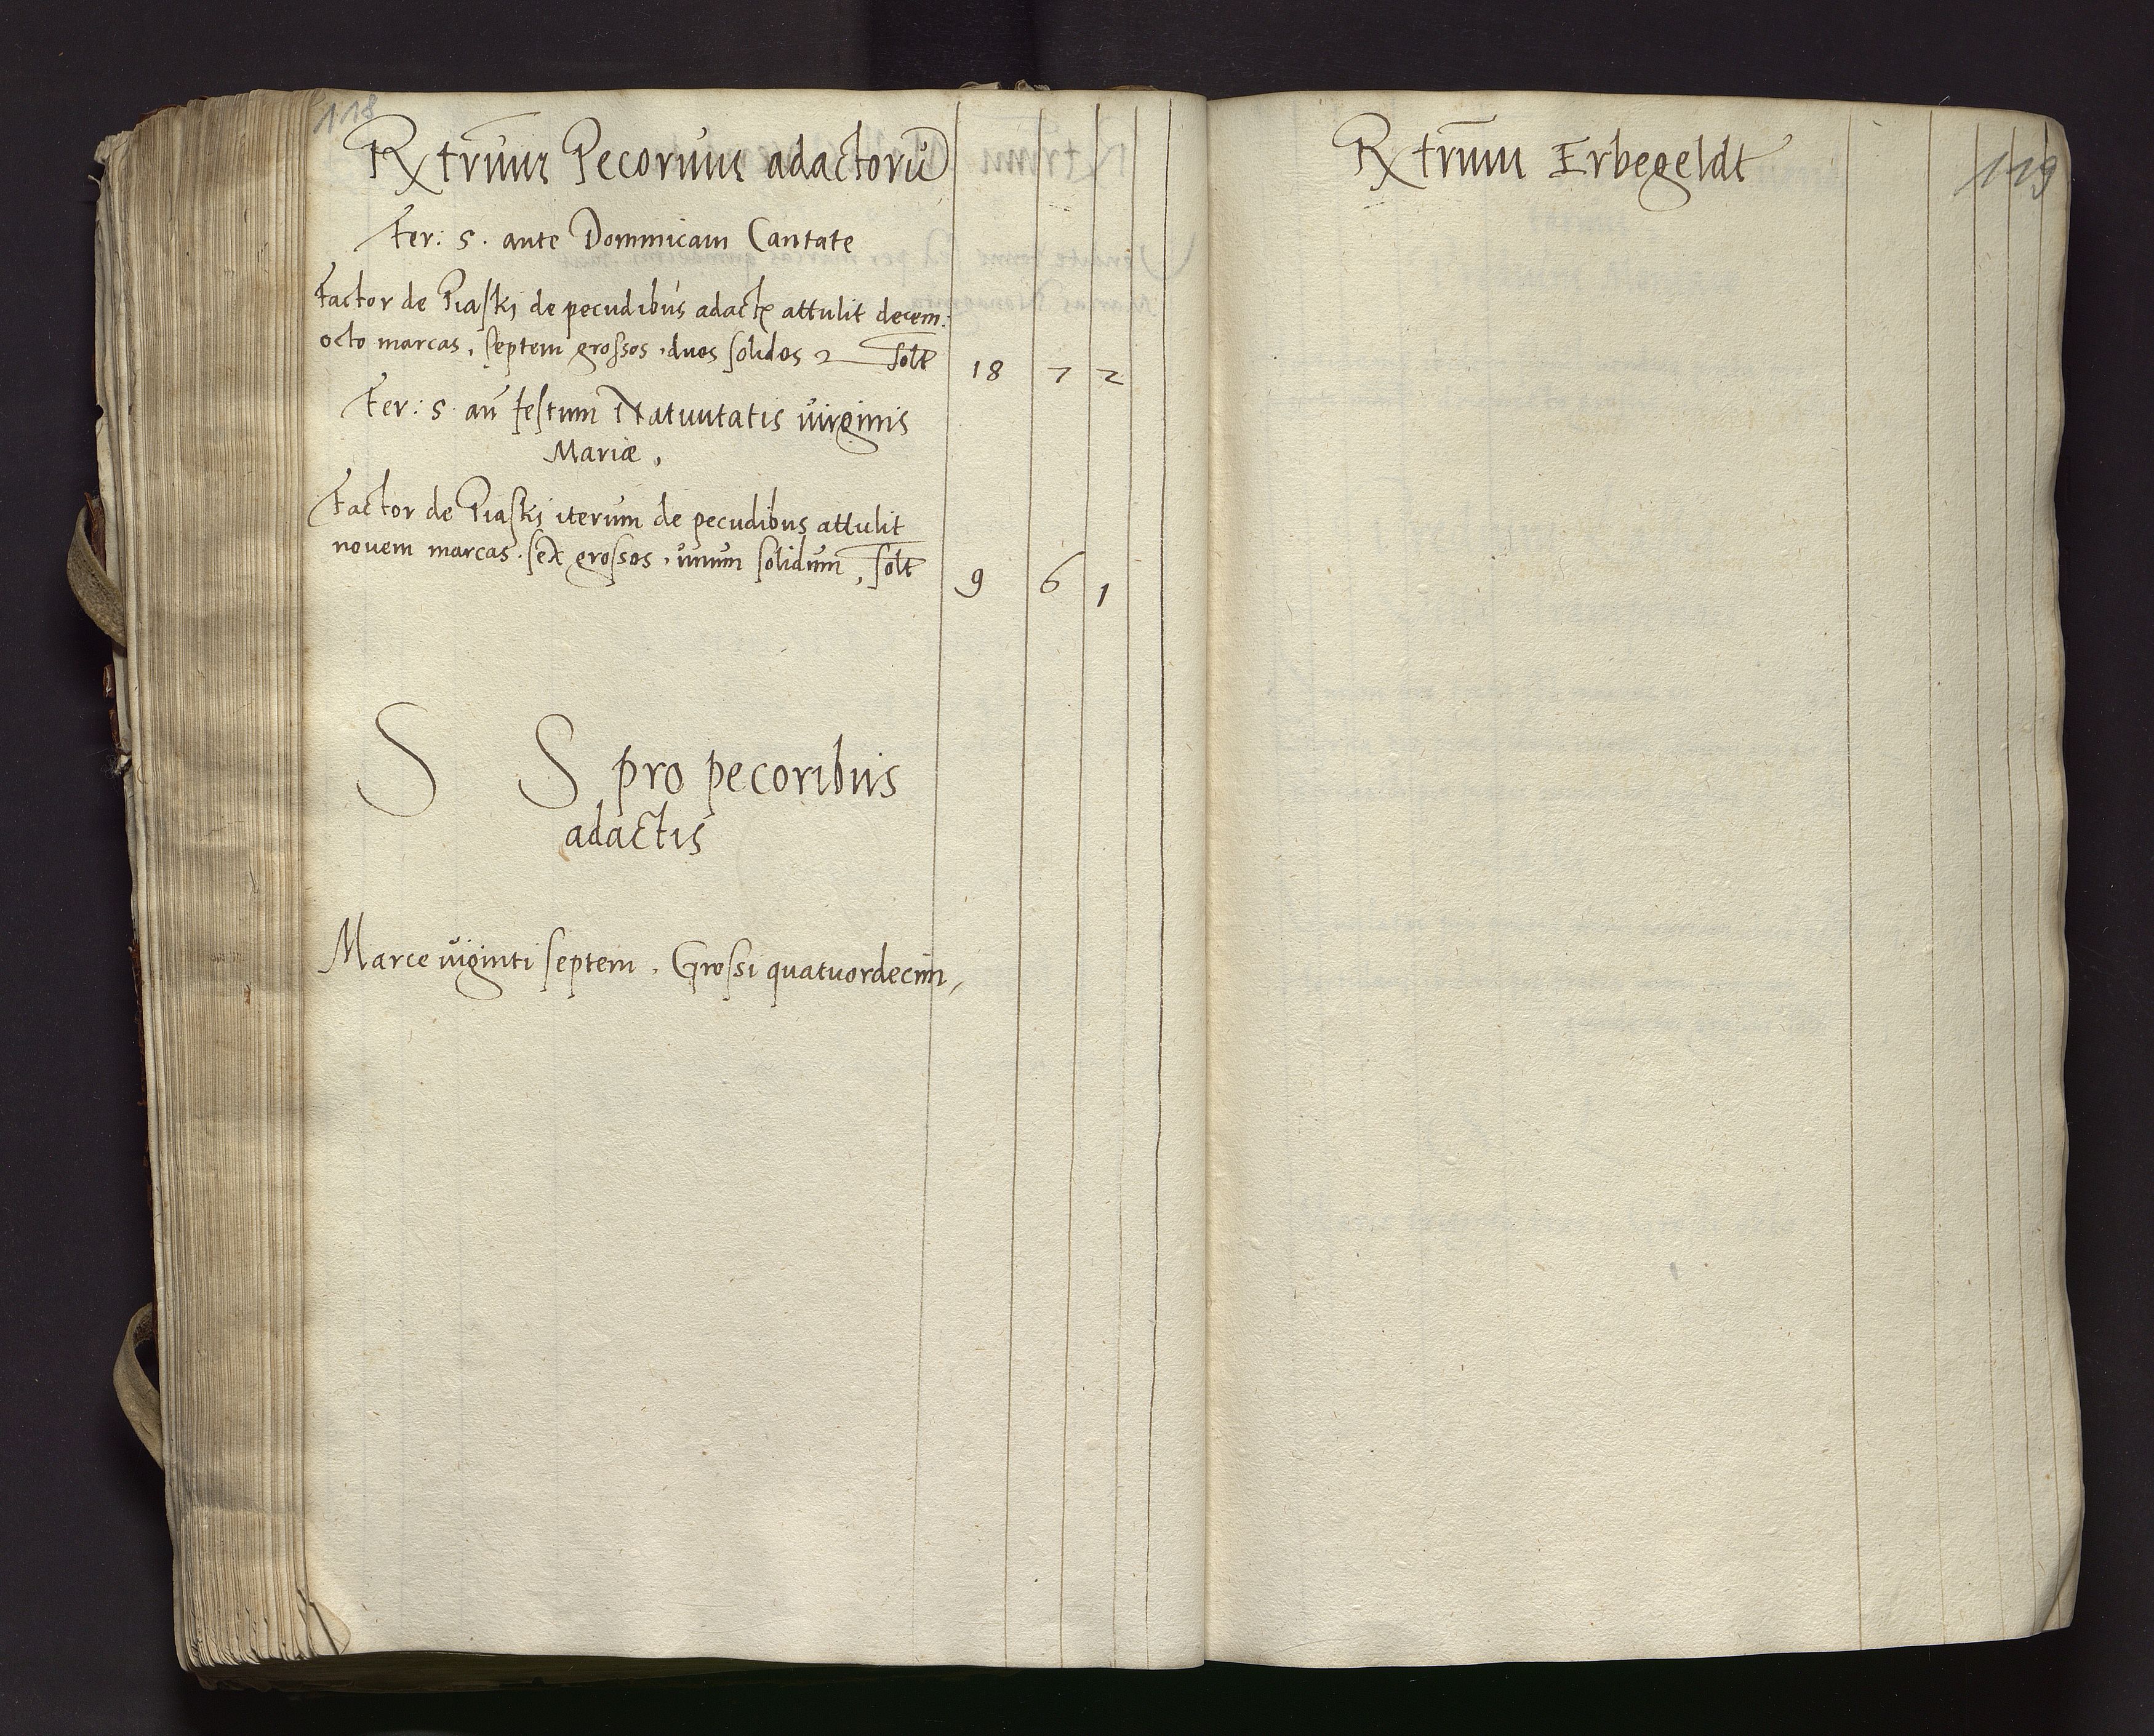 118
Rx trūm Pecorum adactorū
Fer: 5. ante Dominicam Cantate
Factor de Piaski de pecudibus adact attulit decem:
octo marcas, septem grossos, duos solidos solt 18 7 2
Fer: 5. añ festum Natiuitatis uirginis
Mariæ,
Factor de Piaski iterum de pecudibus attulit
nouem marcas. sex grossos, unum solidum, solt 9 6 1
S S pro pecoribus
adactis
Marce uiginti septem, Grossi quatuordecim,
119
Rx trūm Erbegeldt